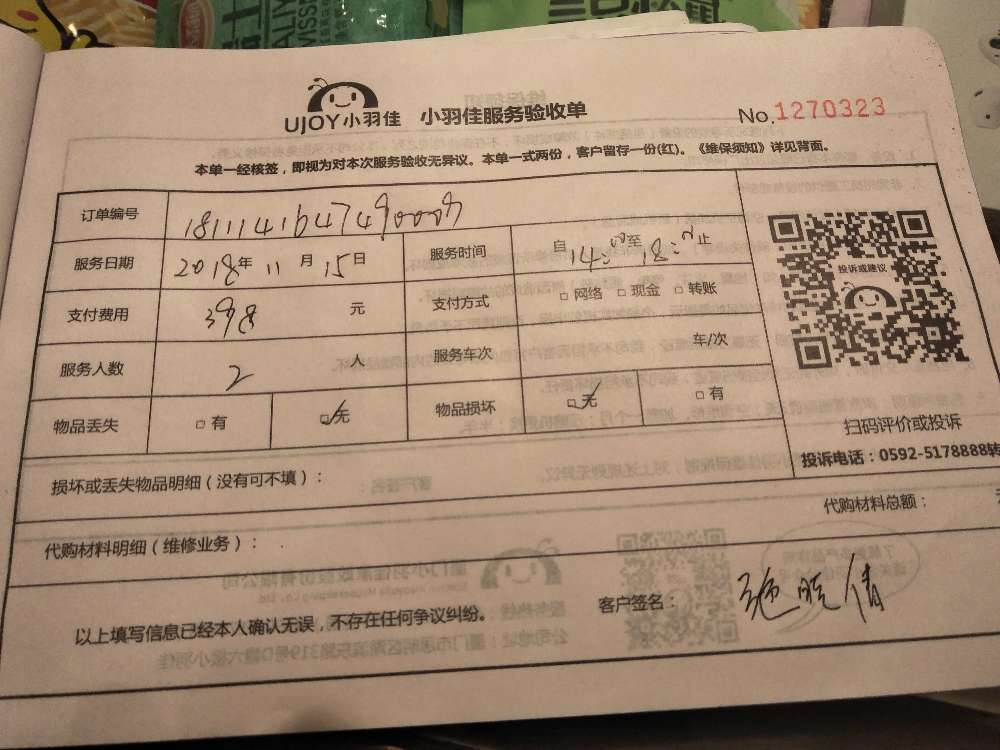 UJOY小羽佳 小羽佳服务验收单 No.1270323
本单一经核签，即视为对本次服务验收无异议。本单一式两份，客户留存一份(红)。《维保须知》详见背面。
订单编号 18111416474900009
服务日期 2018年11月15日 服务时间 自14:00至18:00止
投诉或建议
支付费用 398 元 支付方式 □网络 □现金 □转账
服务人数 2 人 服务车次 车/次
物品丢失 □有 ☑无 物品损坏 ☑无 □有
扫码评价或投诉
投诉电话：0592-5178888转
损坏或丢失物品明细（没有可不填）：
代购材料总额：
代购材料明细（维修业务）：
以上填写信息已经本人确认无误，不存在任何争议纠纷。 客户签名：